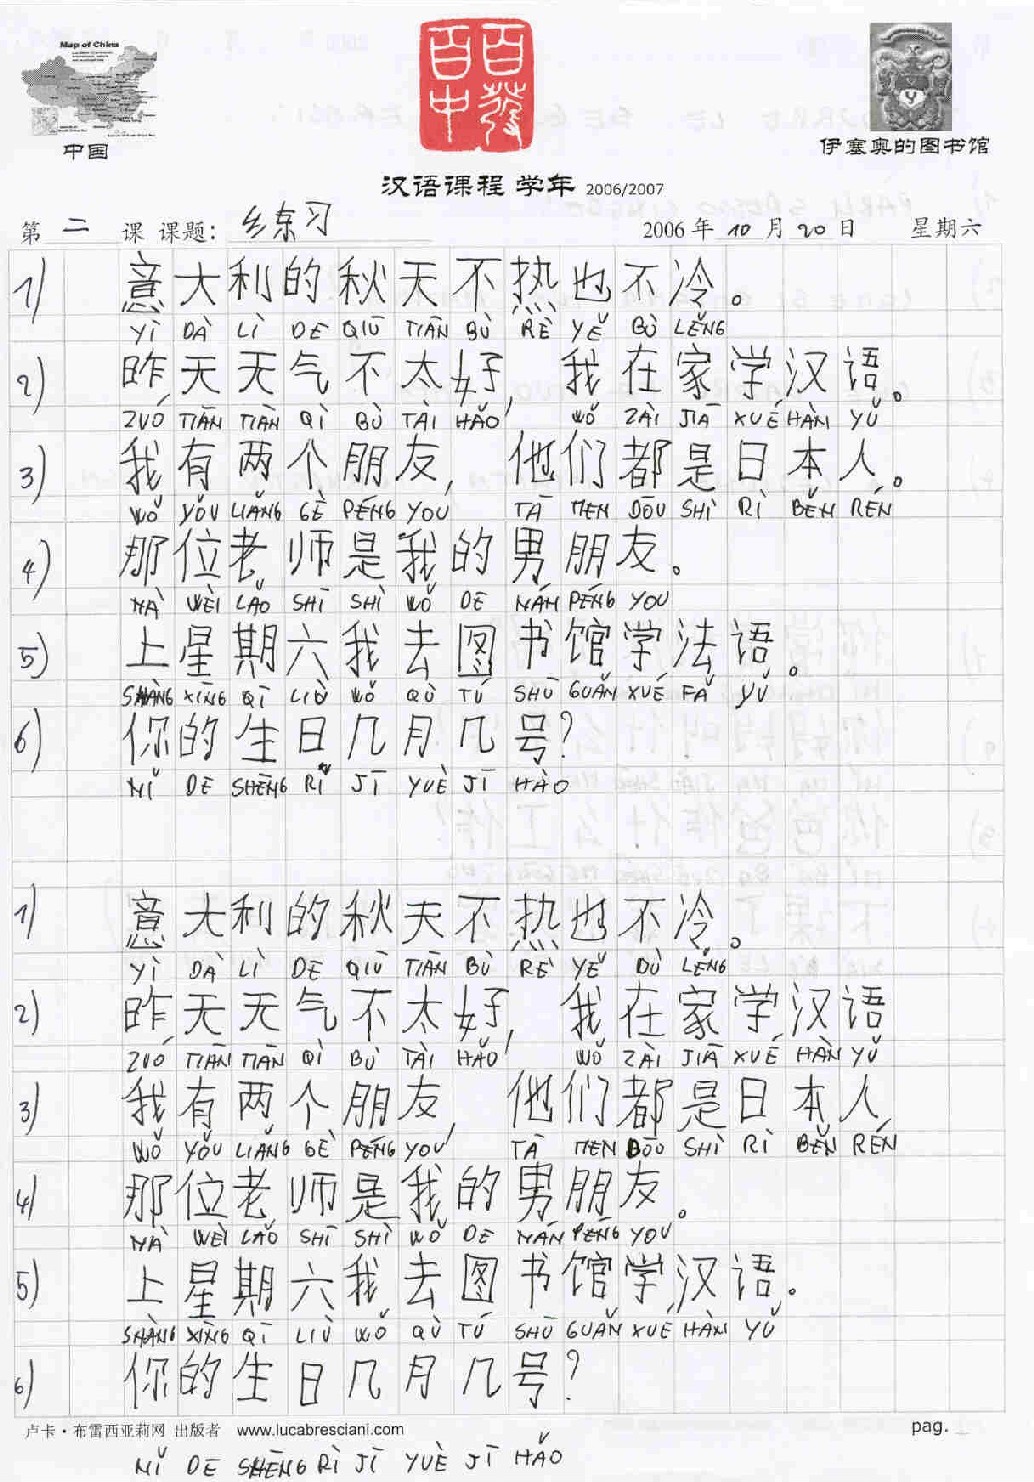 Map of China
百發
百中
中国
伊塞奥的图书馆
汉语课程 学年 2006/2007
第 二 课 课题: 乡练习 2006 年 10 月 20 日 星期六
1) 意大利的秋天不热也不冷。
YÌ DÀ LÌ DE QIŪ TIĀN BÙ RÈ YĚ BÙ LĚNG
2) 昨天天气不太好, 我在家学汉语。
ZUÓ TIĀN TIĀN QÌ BÙ TÀI HǍO, WǑ ZÀI JIĀ XUÉ HÀN YǓ
3) 我有两个朋友, 他们都是日本人。
WǑ YǑU LIǍNG GÈ PÉNG YOU TĀ MEN DŌU SHÌ RÌ BĚN RÉN
4) 那位老师是我的男朋友。
NÀ WÈI LǍO SHĪ SHÌ WǑ DE NÁN PÉNG YOU
5) 上星期六我去图书馆学法语。
SHÀNG XĪNG QĪ LIÙ WǑ QÙ TÚ SHŪ GUǍN XUÉ FǍ YǓ
6) 你的生日几月几号?
NǏ DE SHĒNG RÌ JĪ YUÈ JĪ HÀO
1) 意大利的秋天不热也不冷。
YÌ DÀ LÌ DE QIŪ TIĀN BÙ RÈ YĚ BÙ LĚNG
2) 昨天天气不太好, 我在家学汉语
ZUÓ TIĀN TIĀN QÌ BÙ TÀI HǍO, WǑ ZÀI JIĀ XUÉ HÀN YǓ
3) 我有两个朋友, 他们都是日本人
WǑ YǑU LIǍNG GÈ PÉNG YOU, TĀ MEN DŌU SHÌ RÌ BĚN RÉN
4) 那位老师是我的男朋友。
NÀ WÈI LǍO SHĪ SHÌ WǑ DE NÁN PÉNG YOU
5) 上星期六我去图书馆学汉语。
SHÀNG XĪNG QĪ LIÙ WǑ QÙ TÚ SHŪ GUǍN XUÉ HÀN YǓ
6) 你的生日几月几号?
卢卡·布雷西亚莉网 出版者 www.lucabresciani.com pag.
NǏ DE SHĒNG RÌ JĪ YUÈ JĪ HǍO